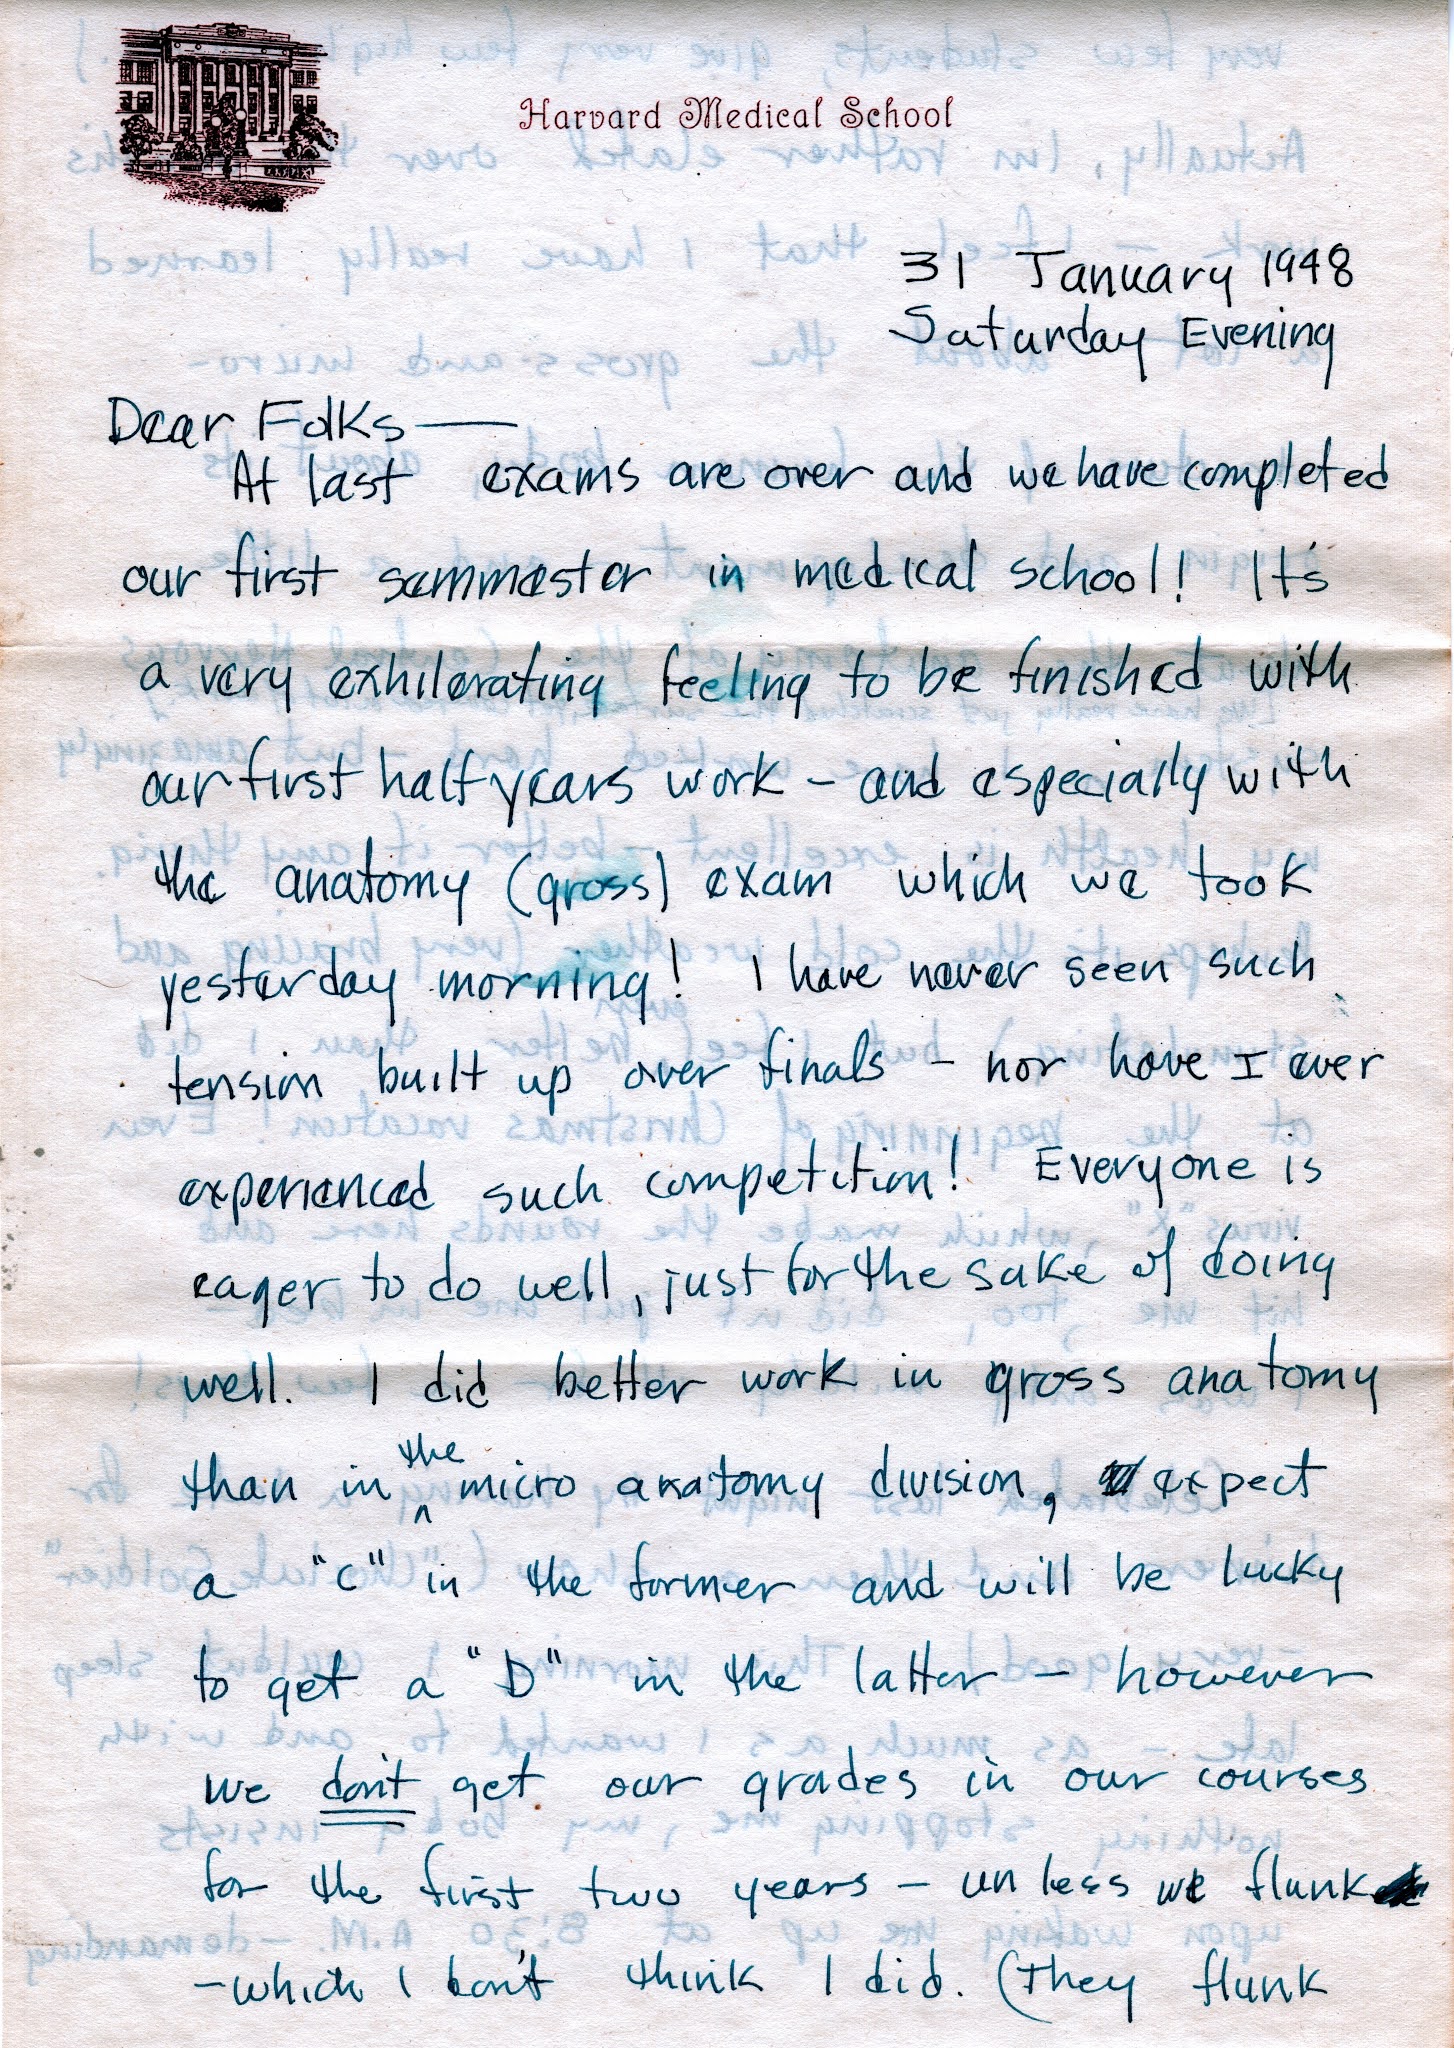 Harvard Medical School
31 January 1948
Saturday Evening
Dear Folks —
At last exams are over and we have completed
our first semmester in medical school! It's
a very exhilerating feeling to be finished with
our first half years work - and especially with
the anatomy (gross) exam which we took
yesterday morning! I have never seen such
tension built up over finals - nor have I ever
experienced such competition! Everyone is
eager to do well, just for the sake of doing
well. I did better work in gross anatomy
than in the micro anatomy division, expect
a "C" in the former and will be lucky
to get a "D" in the latter - however
we don't get our grades in our courses
for the first two years - unless we flunk
- which I don't think I did. (They flunk